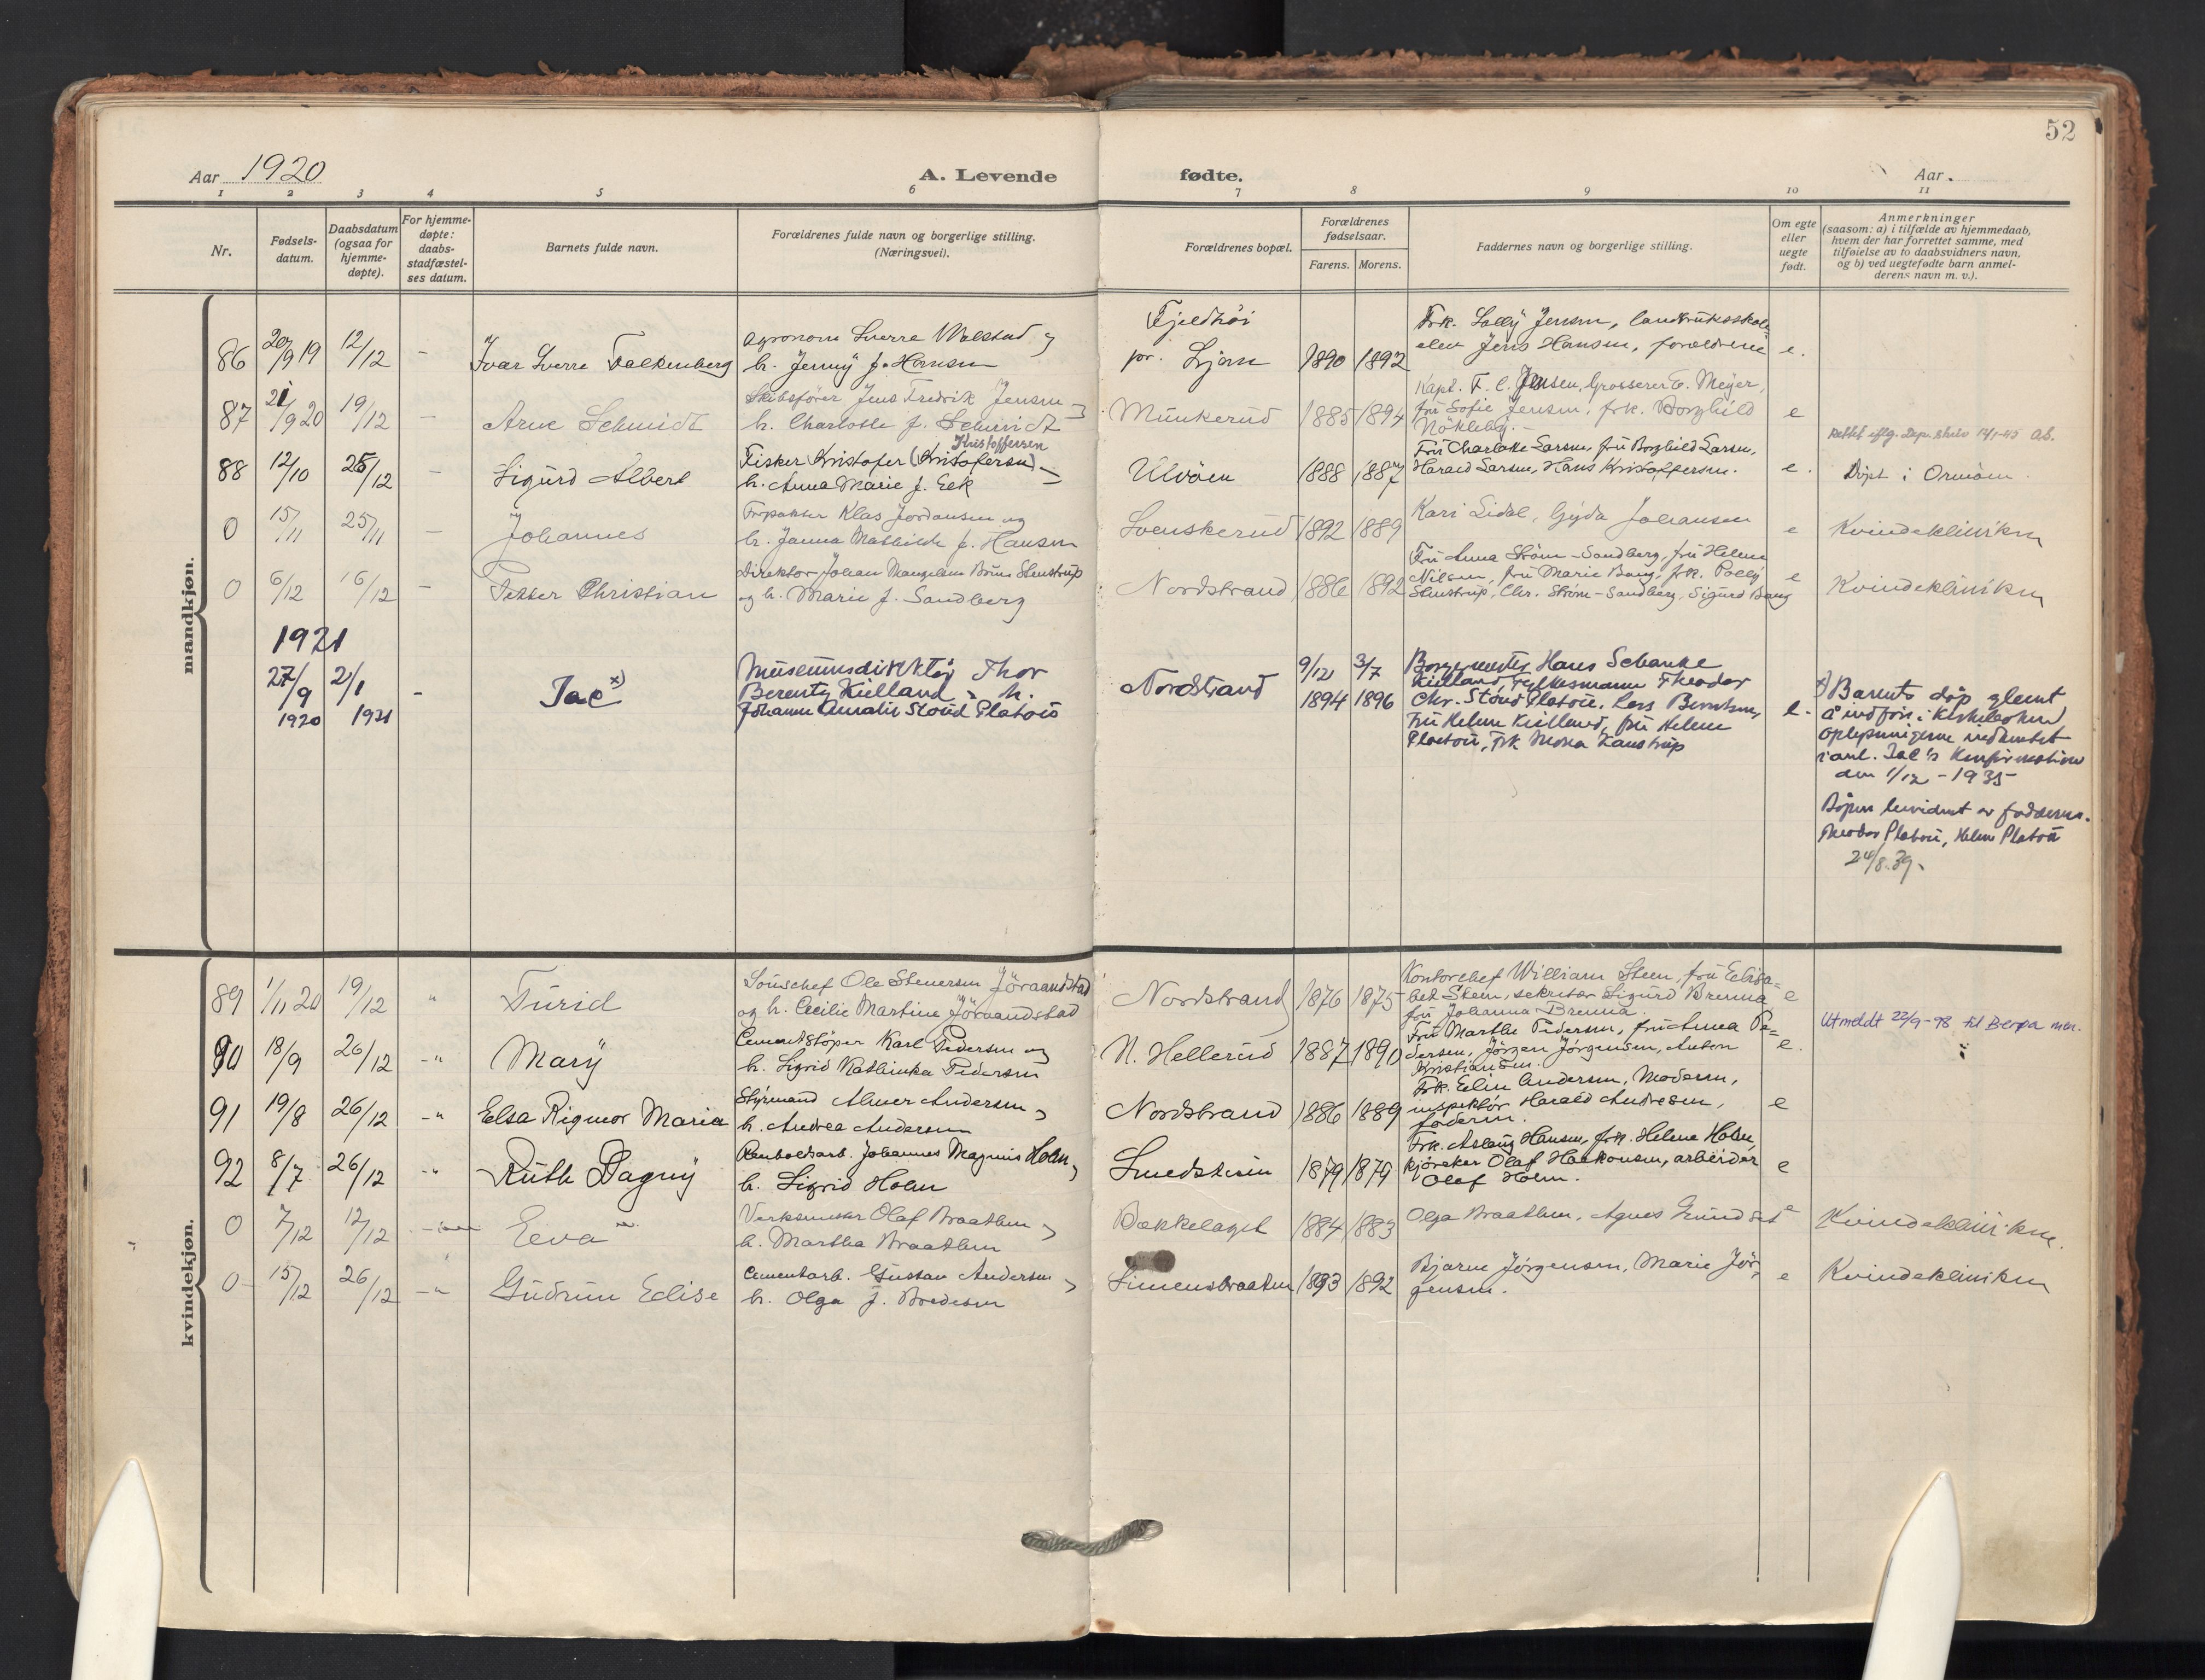 52
Aar 1920
A. Levende fødte.
Aar
1 2 3 4 5 6 7 8 9 10 11
Nr.
Fødsels-
datum.
Daabsdatum
(ogsaa for
hjemme-
døpte).
For hjemme-
døpte:
daabs-
stadfæstel-
ses datum.
Barnets fulde navn.
Forældrenes fulde navn og borgerlige stilling.
(Næringsvei).
Forældrenes bopæl.
Forældrenes
fødselsaar.
Farens. Morens.
Faddernes navn og borgerlige stilling.
Om egte
eller
uegte
født.
Anmerkninger
(saasom: a) i tilfælde av hjemmedaab,
hvem der har forrettet samme, med
tilføielse av to daabsvidners navn,
og b) ved uegtefødte barn anmel-
derens navn m. v.).
mandkjøn.
86 20/9 19 12/12 - Ivar Sverre Falkenberg
agronom Sverre Walstad og
h. Jenny f. Hansen
Fjeldhöi
pr. Ljan 1890 1892
Frk. Lolly Jensen, landbruksskole-
elev Jens Hansen, forældrene e.
87 21/9 20 19/12 - Arne Schmidt
Skibsförer Jens Fredrik Jensen
h. Charlotte f. Schmidt
Munkerud 1885 1894
Kapt. F. C. Jensen, Grosserer E. Meyer,
fru Sofie Jensen, frk. Borghild
Nökleby. e
88 12/10 25/12 - Sigurd Albert
Kristoffersen
Fisker Kristofer (Kristofersen)
h. Anna Marie f. Eek
Ulvöen 1888 1887
Fru Charlotte Larsen, fru Borghild Larsen,
Harald Larsen, Hans Kristoffersen. e.
Rettet iflg. Dep. skriv 14/1-45
Döpt i Ormöen.
0 15/11 25/11 - Johannes
Klas Jordansen og
h. Janna Mathilde f. Hansen
Svenskerud 1892 1889
Kari Lidal, Gyda Johansen e
Kvindekliniken
0 6/12 16/12 - Petter Christian
Direktör Johan Brun Stenstrup
og h. Marie f. Sandberg
Nordstrand 1886 1892
Fru Anna Ström-Sandberg, fru Helene
Nilsen, fru Marie Bang, frk. Polly
Stenstrup, Chr. Ström-Sandberg, Sigurd Bang e
Kvindekliniken
1921
27/9 1920 2/1 1921 - Jac x)
Museumsdirektör Thor
Berentz Kielland h.
Johanne Amalie Stoud Platou
Nordstrand 9/12 1894 3/7 1896
Borgermester Hans Schanke
Kielland, Fylkesmann Theodor
Chr. Stoud Platou, Lars Berentsen,
Fru Helene Kielland, fru Helene
Platou, frk Mona e.
x) Barnets dåp glemt
å indföre i kirkeboken
oplysningene nedtegnet
i anl. Jac's Konfirmation
den 1/12 - 1935
Dåpen bevidnet av fadderne.
Theodor Platou, Helene Platou
24/8.39.
kvindekjøn.
89 1/11 20 19/12 " Turid
Ole Stenersen Jöraandstad
og h. Cecilie Martine Jöraandstad
Nordstrand 1876 1875
Kontorchef William Steen, fru Elisa-
bet Steen, sekretær Sigurd Brenna
fru Johanna Brenna. e
Utmeldt 22/9-48 til
90 18/9 26/12 -" Mary
Cementstöper Karl Pedersen og
h. Sigrid Kathinka Pedersen
N. Hellerud 1887 1890
Fru Marthe Pedersen, fru Anna Pe-
dersen, Jörgen Jörgensen, Anton
Kristiansen. e.
91 19/8 26/12 -" Elsa Rigmor Maria
Styrmand Almer Andersen
h. Andrea Andersen
Nordstrand 1886 1889
Frk. Elin Andersen, Moderen,
inspektör Harald Andresen,
faderen. e
92 8/7 26/12 -" Ruth Dagny
Renholdsarb. Johannes Magnus Holm
h. Sigrid Holm
Smedstuen 1879 1879
Frk. Aslaug Hansen, frk. Helene Holm,
kjörekar Olaf Haakonsen, arbeider
Olaf Holm. e
0 7/12 12/12 Eeva
Verksmester Olaf Braathen
h. Martha Braathen
Bækkelaget 1884 1883
Olga Braathen, Agnes Grundset e
Kvindekliniken.
0 15/12 26/12 -" Gudrun Edise
Cementarb. Gustav Andersen
h. Olga f. Bredesen
Simensbraaten 1893 1892
Bjarne Jörgensen, Marie Jör-
gensen. e
Kvindekliniken